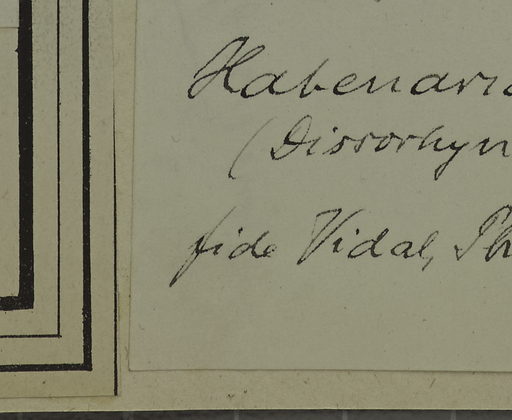 Habenaria
(Dissorhyn
fide Vidal, Ph